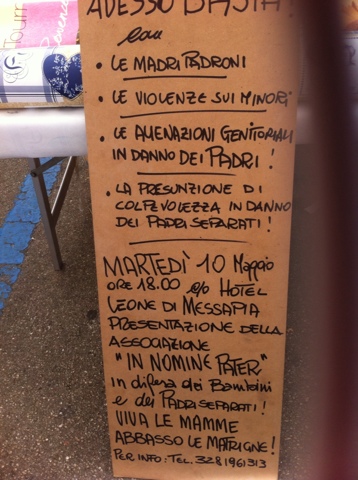 ADESSO BASTA!
con
• LE MADRI PADRONI
• LE VIOLENZE SUI MINORI
• LE ALIENAZIONI GENITORIALI
IN DANNO DEI PADRI!
• LA PRESUNZIONE DI
COLPEVOLEZZA IN DANNO
DEI PADRI SEPARATI!
MARTEDÌ 10 Maggio
ORE 18.00 c/o HOTEL
LEONE DI MESSAPIA
PRESENTAZIONE DELLA
ASSOCIAZIONE
"IN NOMINE PATER"
in difesa dei Bambini
e dei PADRI SEPARATI!
VIVA LE MAMME
ABBASSO LE MATRIGNE!
PER INFO: TEL. 3281961313